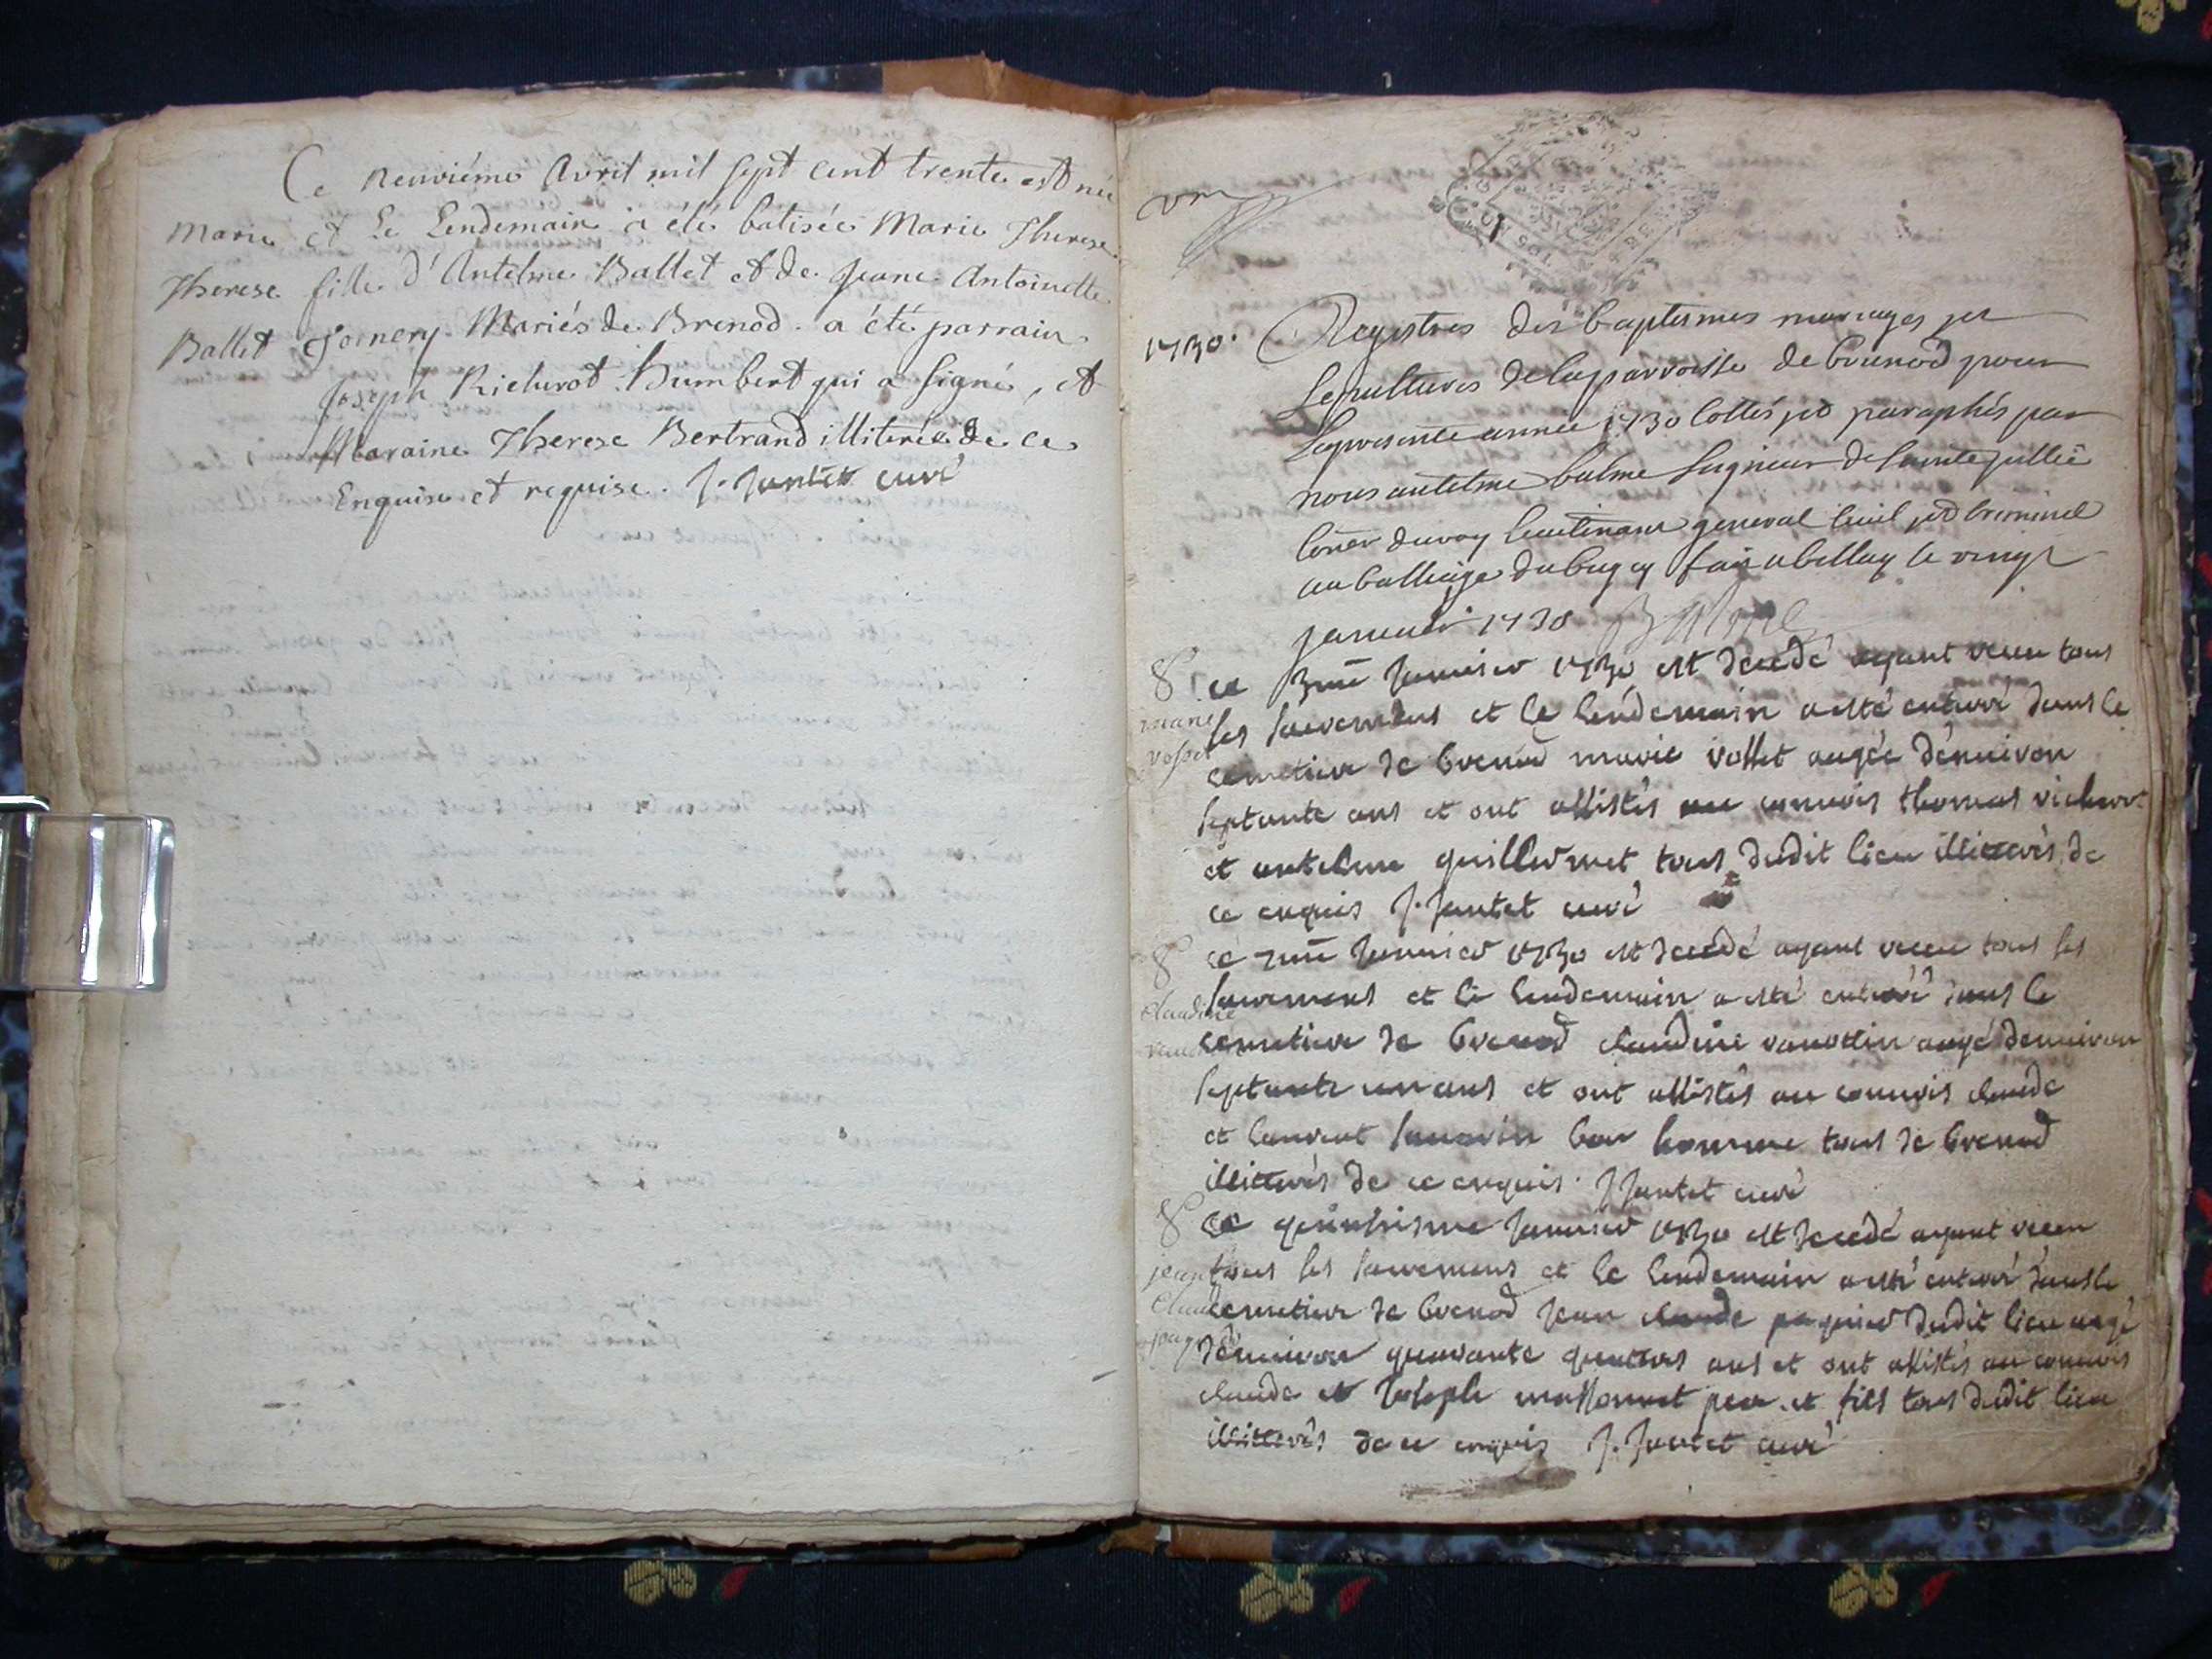 Ce neuviéme Avril mil sept cent trente est née
Marie et Le Lendemain a été batisée Marie Therese
Therese fille d'Antelme Ballet et de Jeane Antoinette
Ballet Goinery Mariés de Brenod. a été parrain
Joseph Richerot Humbert qui a signé, et
Maraine Therese Bertrand illiterée de ce
Enquise et requise. J. Jantet curé
vn
1730. Registres des baptesmes mariages et
sepultures de la parroisse de brenod pour
la presente année 1730 Cottés et paraphés par
nous antelme balme seigneur de sainte jullie
Coner du roy lieutenant general Civil et Criminel
au balliage du bugey fait a bellay le vingt
janvier 1730 Balme
ce 3me Janvier 1730 est decedé ayant receu tous
marie les sacremens et le lendemain a esté enterré dans le
vosset cemetiere de brenod marie vosset augée d'enuiron
septante ans et ont assistés au conuois thomas richerot
et antelme guillermet tous dudit lieu illitterés de
ce enquis J. Jantet curé
ce 7me Janvier 1730 est decedé ayant receu tous les
claudine sacremens et le lendemain a esté enterré dans le
cemetiere de brenod claudine augé denuiron
septante un ans et ont assistés au conuois claude
et laurent bon homme tous de brenod
illitterés de ce enquis. J Jantet curé
ce quinsiesme Janvier 1730 est decedé ayant receu
jean tous les sacremens et le lendemain a esté enterré dans le
claude cemetiere de brenod Jean claude paquier dudit lieu augé
d'enuiron quarante quattres ans et ont assistés au conuois
claude et Joseph massonnet pere et fils tous dudit lieu
illitterés de ce enquis J. Jantet curé